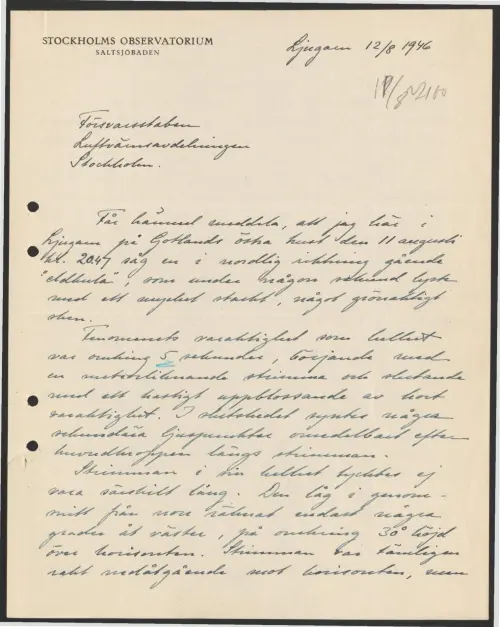 STOCKHOLMS OBSERVATORIUM
SALTSJÖBADEN
Ljugarn 12/8 1946
Försvarsstaben
Luftvärnsavdelningen
Stockholm.
Får härmed meddela, att jag här i
Ljugarn på Gotlands östra kust den 11 augusti
kl. 20.47 såg en i nordlig riktning gående
"eldkula", som under någon sekund lyste
med ett mycket starkt, något grönaktigt
sken.
Fenomenets varaktighet som helhet
var omkring 5 sekunder, börjande med
en meteorliknande strimma och slutande
med ett hastigt uppblossande av kort
varaktighet. I slutskedet syntes några
sekundära ljuspunkter omedelbart efter
huvudkroppen längs strimman.
Strimman i sin helhet tycktes ej
vara särskilt lång. Den låg i genom-
snitt från norr räknat endast några
grader åt väster, på omkring 30° höjd
över horisonten. Strimman var tämligen
rakt nedåtgående mot horisonten, men